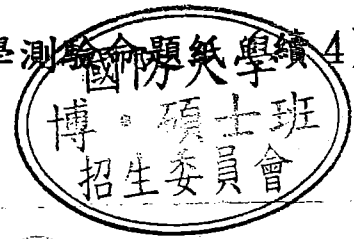 學測驗命題紙學續4
國防大學
博·碩士班
招生委員會